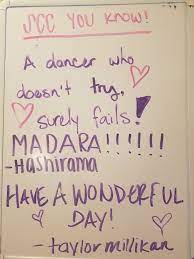 SCC YOU KNOW!
A dancer who
doesn't try,
surely fails!
MADARA!!!!!!
-Hashirama
HAVE A WONDERFUL
DAY!
-taylor millikan